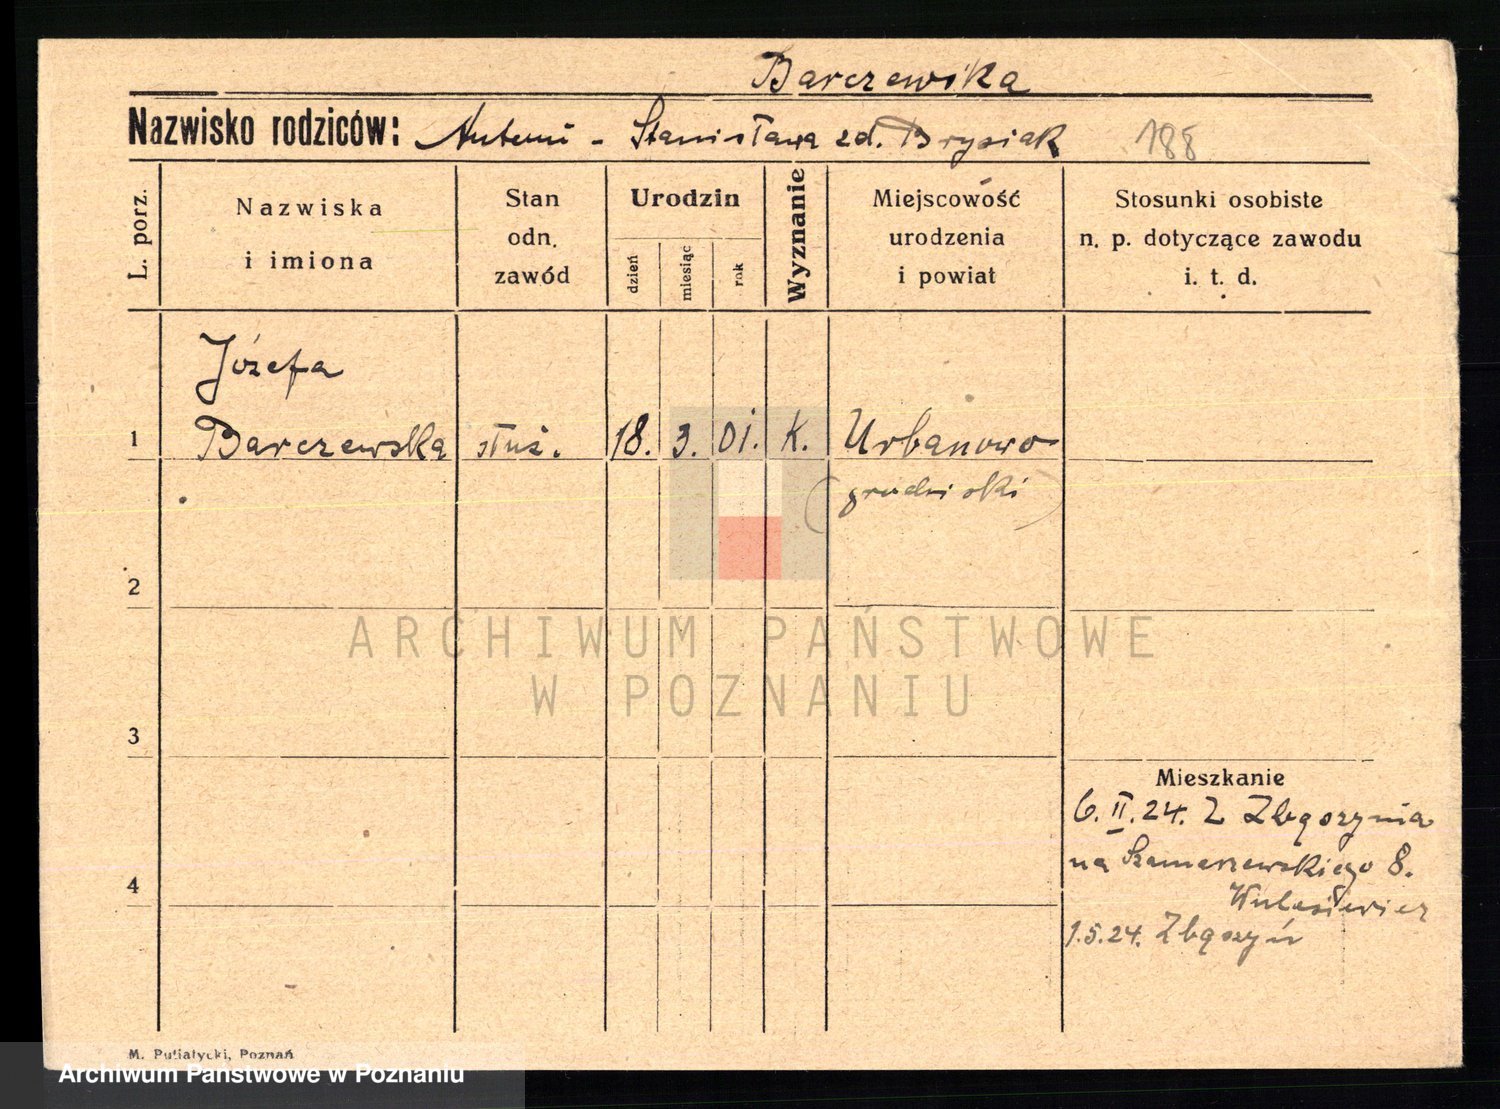 Barczewska
Nazwisko rodziców: Antoni - Stanisława zd. Brysiak 188
L. porz.
Nazwiska
i imiona
Stan
odn.
zawód
Urodzin
dzień
miesiąc
rok
Wyznanie
Miejscowość
urodzenia
i powiat
Stosunki osobiste
n. p. dotyczące zawodu
i. t. d.
Józefa
1 Barczewska służ. 18. 3. 01. K. Urbanowo
(grodziski)
2
ARCHIWUM PAŃSTWOWE
W POZNANIU
3
Mieszkanie
6.II.24. Z Zbąszynia
na Szamarzewskiego 8.
4
1.5.24. Zbąszyń
M. Putiatycki, Poznań
Archiwum Państwowe w Poznaniu